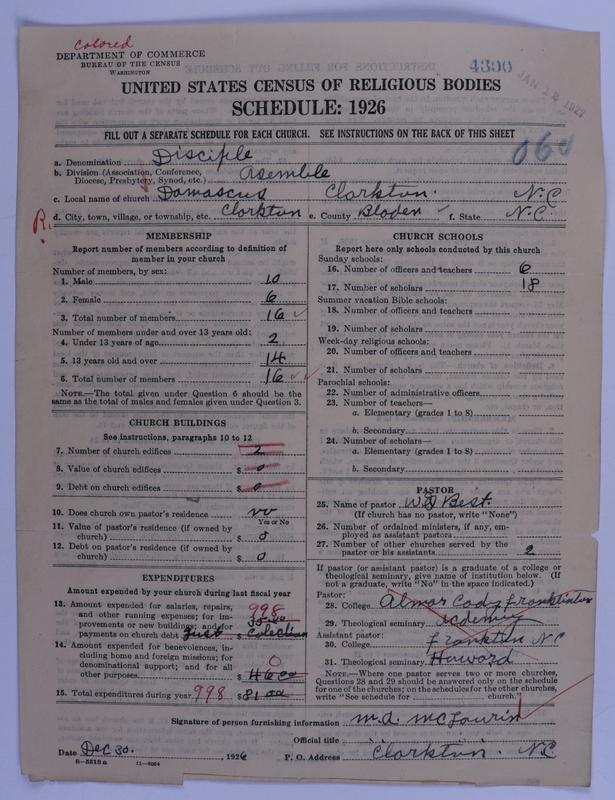 colored
DEPARTMENT OF COMMERCE
BUREAU OF THE CENSUS
WASHINGTON
4390
JAN 14 1927
UNITED STATES CENSUS OF RELIGIOUS BODIES
SCHEDULE: 1926
FILL OUT A SEPARATE SCHEDULE FOR EACH CHURCH. SEE INSTRUCTIONS ON THE BACK OF THIS SHEET
060
a. Denomination Disciple
b. Division (Association, Conference, Diocese, Presbytery, Synod, etc.) Asemble
c. Local name of church Damascus Clarkton. N.C
d. City, town, village, or township, etc. Clarkton e. County Bladen f. State N.C.
R.
MEMBERSHIP
Report number of members according to definition of
member in your church
Number of members, by sex:
1. Male 10
2. Female 6
3. Total number of members 16
Number of members under and over 13 years old:
4. Under 13 years of age 2
5. 13 years old and over 14
6. Total number of members 16
NOTE.—The total given under Question 6 should be the
same as the total of males and females given under Question 3.
CHURCH BUILDINGS
See instructions, paragraphs 10 to 12
7. Number of church edifices 2
8. Value of church edifices $ 0
9. Debt on church edifices $ 0
10. Does church own pastor's residence no
Yes or No
11. Value of pastor's residence (if owned by
church) $ 0
12. Debt on pastor's residence (if owned by
church) $ 0
EXPENDITURES
Amount expended by your church during last fiscal year
13. Amount expended for salaries, repairs,
and other running expenses; for im-
provements or new buildings; and for
payments on church debt Just Colection
998
35.00
14. Amount expended for benevolences, in-
cluding home and foreign missions; for
denominational support; and for all
other purposes $ 46 00
0
15. Total expenditures during year 998 $ 81 00
CHURCH SCHOOLS
Report here only schools conducted by this church
Sunday schools:
16. Number of officers and teachers 6
17. Number of scholars 18
Summer vacation Bible schools:
18. Number of officers and teachers
19. Number of scholars
Week-day religious schools:
20. Number of officers and teachers
21. Number of scholars
Parochial schools:
22. Number of administrative officers
23. Number of teachers—
a. Elementary (grades 1 to 8)
b. Secondary
24. Number of scholars—
a. Elementary (grades 1 to 8)
b. Secondary
PASTOR
25. Name of pastor W.D Best.
(If church has no pastor, write "None")
26. Number of ordained ministers, if any, em-
ployed as assistant pastors
27. Number of other churches served by the
pastor or his assistants 2
If pastor (or assistant pastor) is a graduate of a college or
theological seminary, give name of institution below. (If
not a graduate, write "No" in the space indicated.)
Pastor:
28. College
29. Theological seminary
Assistant pastor:
30. College franklin NC
31. Theological seminary Howard
NOTE.—Where one pastor serves two or more churches,
Questions 28 and 29 should be answered only on the schedule
for one of the churches; on the schedules for the other churches,
write "See schedule for church."
Signature of person furnishing information m.a. mcLaurin
Official title
Date Dec 30. , 1926 P. O. Address Clarkton. N.C
8-5518 a 11-9024